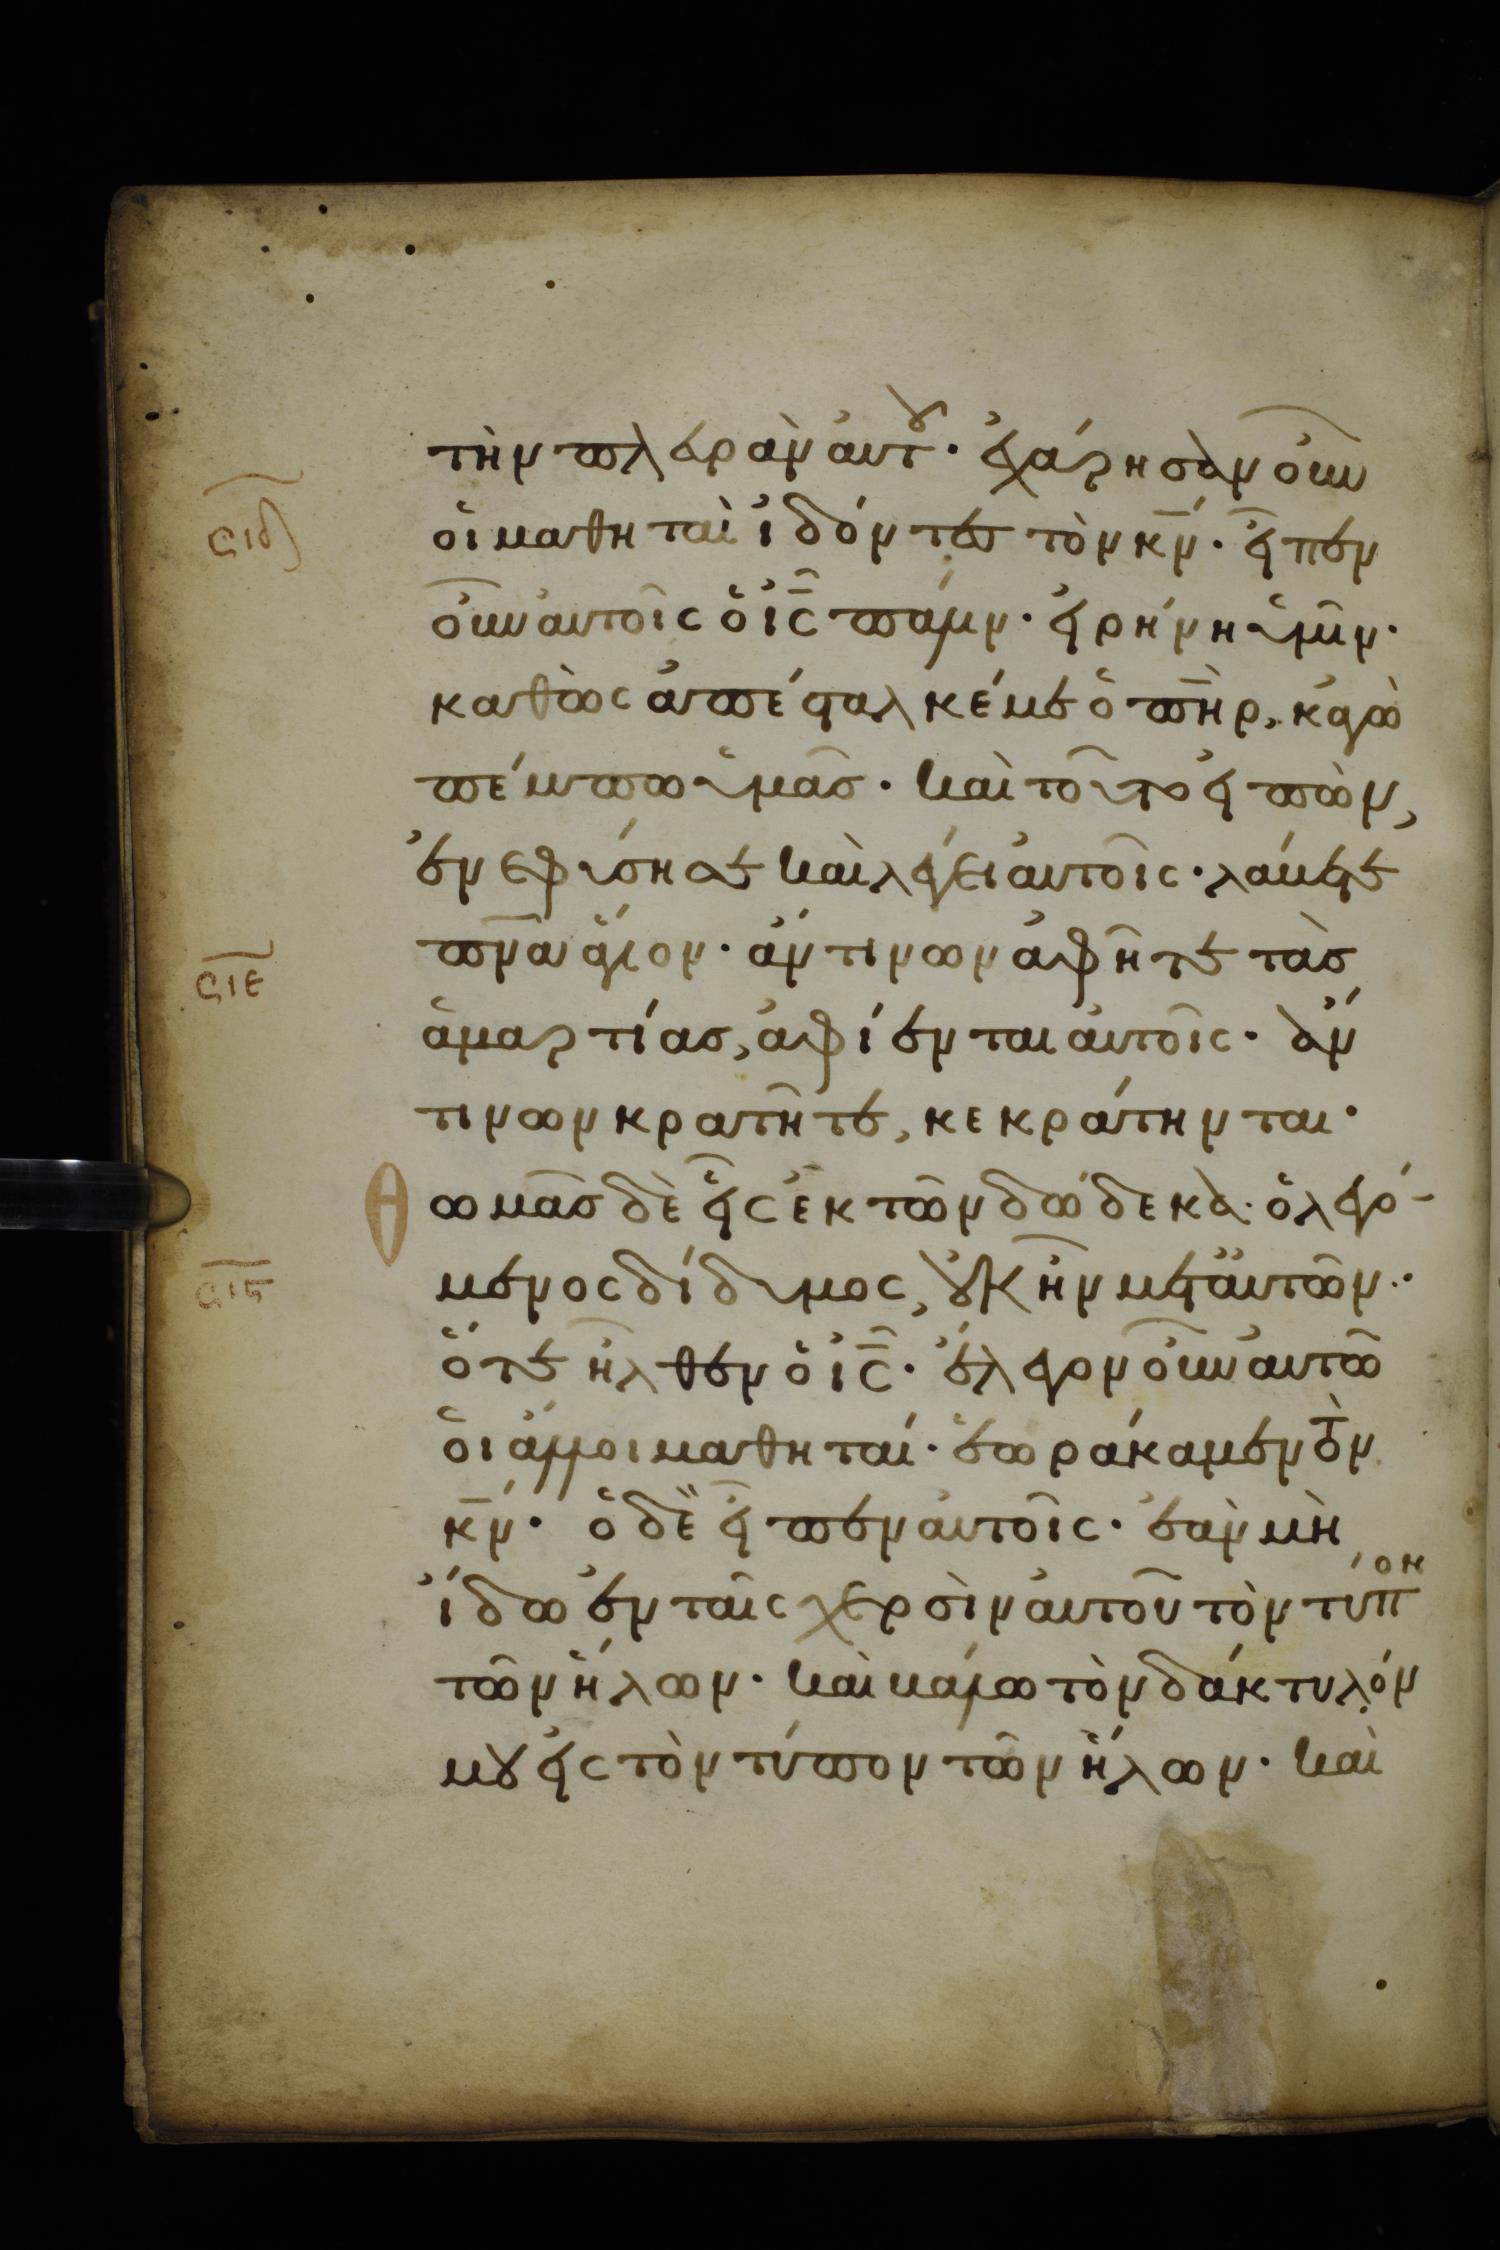 τὴν πλευρὰν αὐτοῦ· ἐχάρησαν οὖν
σιδ
οἱ μαθηταὶ ἰδόντες τὸν κ̅ν̅· εἶπεν
οὖν αὐτοῖς ὁ ι̅ς̅ πάλιν· εἰρήνη ὑμῖν·
καθὼς ἀπέσταλκέ με ὁ π̅η̅ρ, κἀγὼ
πέμπω ὑμᾶς· καὶ τοῦτο εἰπὼν,
ἐνεφύσησε καὶ λέγει αὐτοῖς· λάβετε
σιε
π̅ν̅α ἅγιον· ἄν τινων ἀφῆτε τὰς
ἁμαρτίας, ἀφίενται αὐτοῖς· ἄν
τινων κρατῆτε, κεκράτηνται·
Θωμᾶς δὲ εἷς ἐκ τῶν δώδεκα· ὁ λεγό-
σιϛ
μενος δίδυμος, οὐκ ἦν μετ' αὐτῶν·
ὅτε ἦλθεν ὁ ι̅ς̅· ἔλεγον οὖν αὐτῶ
οἱ ἄλλοι μαθηταί· ἑωράκαμεν τὸν
κ̅ν̅· ὁ δὲ εἶπεν αὐτοῖς· ἐὰν μὴ
ἴδω ἐν ταῖς χερσὶν αὐτοῦ τὸν τύπον
τῶν ἥλων· καὶ βάλω τὸν δάκτυλόν
μου εἰς τὸν τύπον τῶν ἥλων· καὶ